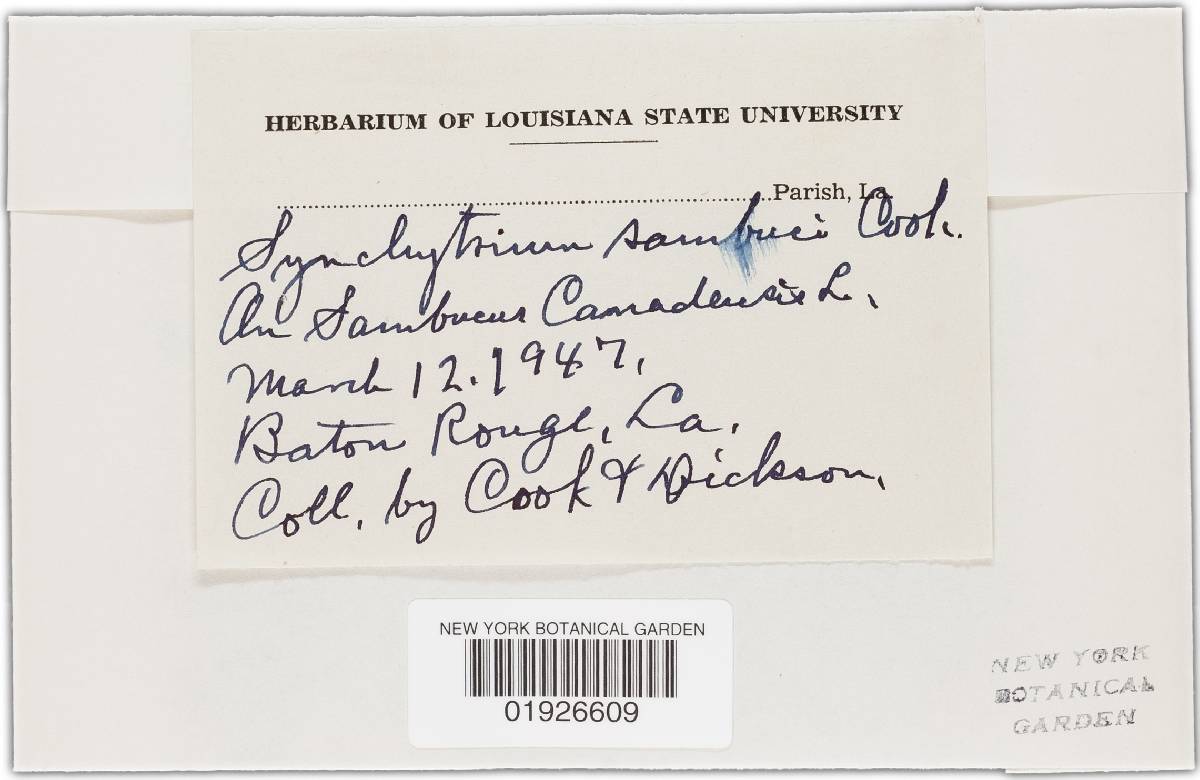 HERBARIUM OF LOUISIANA STATE UNIVERSITY
Parish, La.
Synchytrium sambuci Cook.
On Sambucus Canadensis L.,
March 12. 1947,
Baton Rouge, La.
Coll. by Cook & Dickson,
NEW YORK BOTANICAL GARDEN
01926609
NEW YORK
BOTANICAL
GARDEN